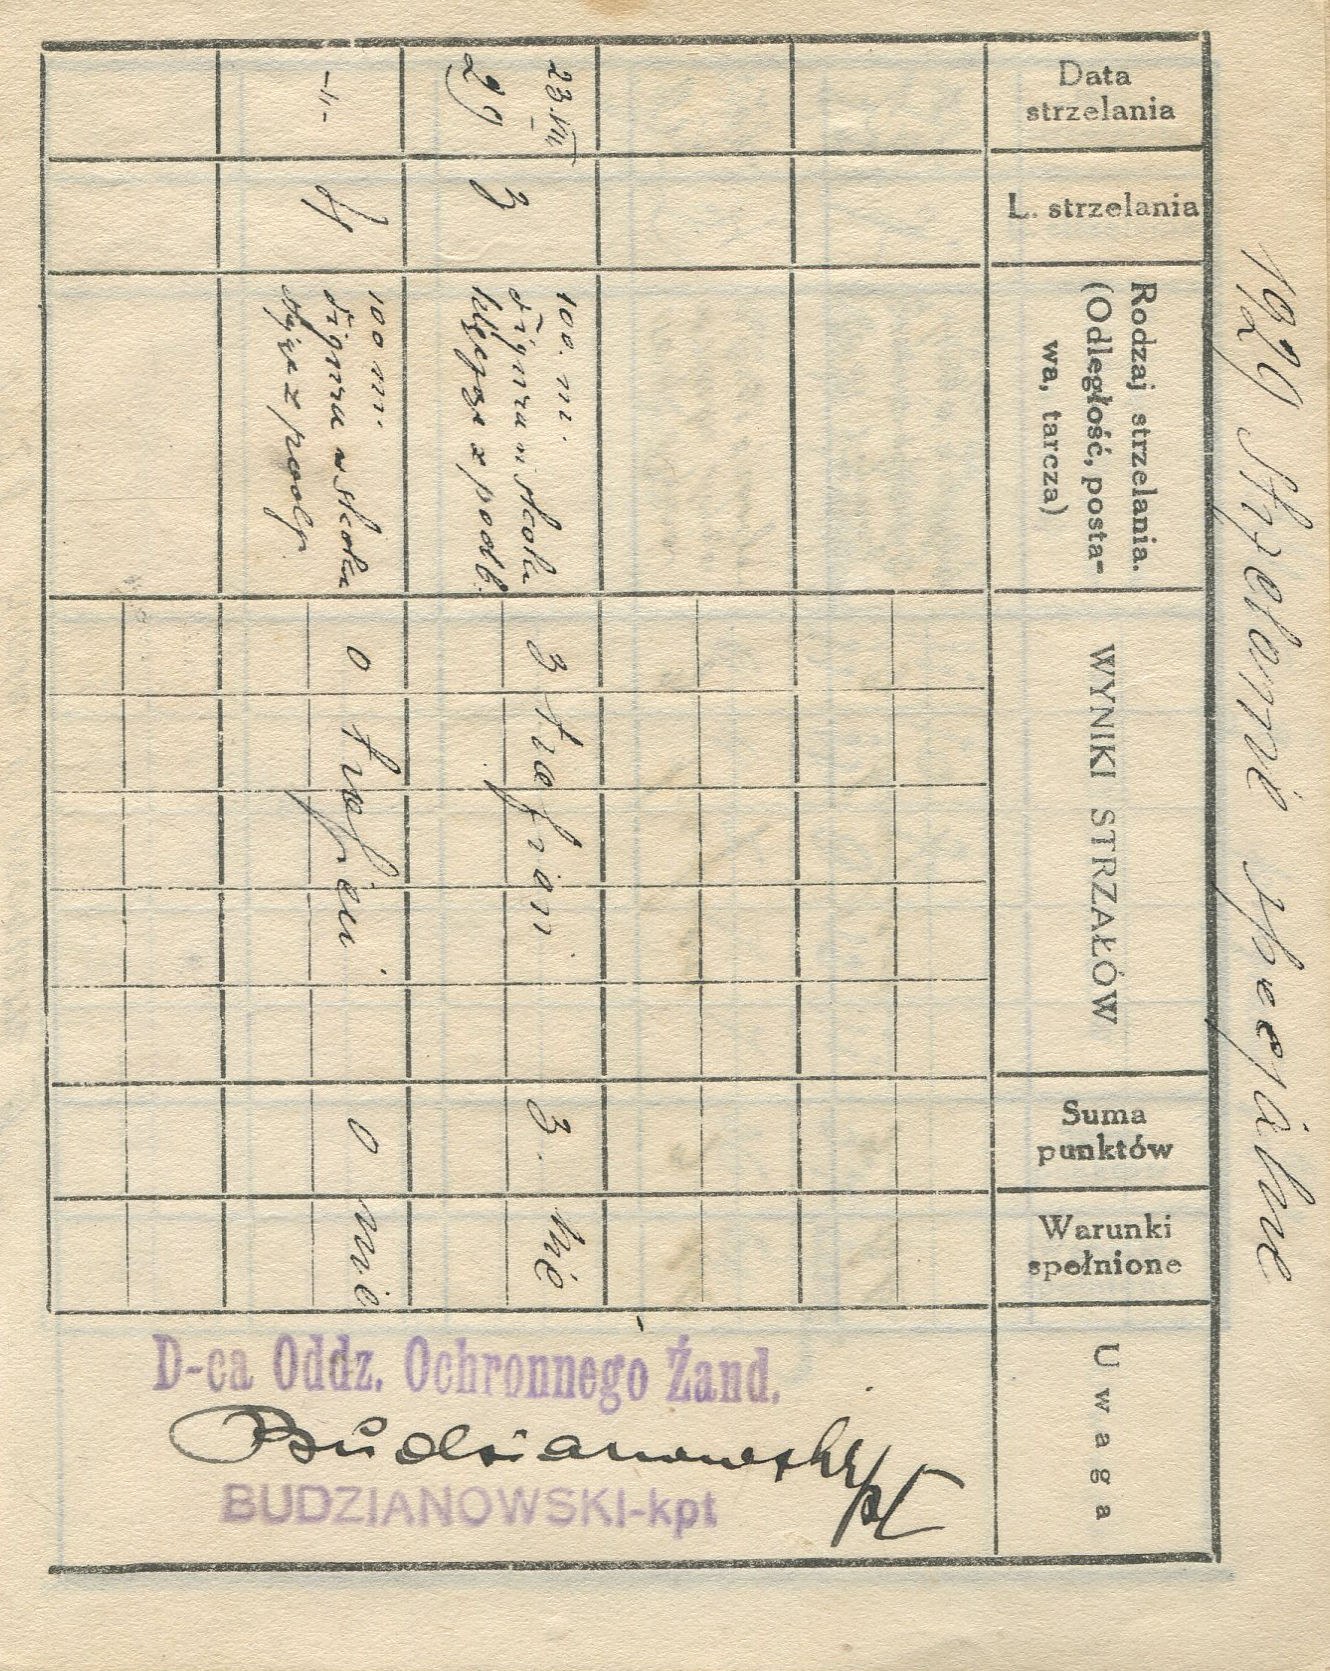 1929 Strzelanie specjalne
Data
strzelania
L. strzelania
Rodzaj strzelania.
(Odległość, posta-
wa, tarcza)
WYNIKI STRZAŁÓW
Suma
punktów
Warunki
spełnione
Uwaga
23.VIII
29
3
100. m.
figura w skoku
klęcząc z podb.
3 trafion
3.
nie
-"-
4
100 m.
figura w skoku
z podp.
0 trafień
0
nie
D-ca Oddz. Ochronnego Żand.
Budzianowski kpt
BUDZIANOWSKI-kpt